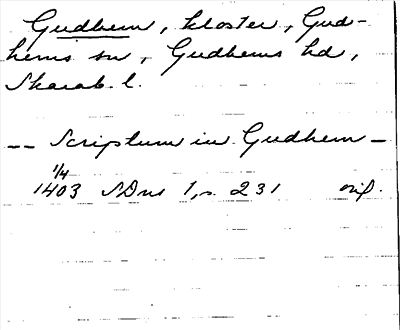 Gudhem, kloster, Gud-
hems sn, Gudhems hd,
Skarab. l.
-- Scriptum in Gudhem -
1/4
1403 SDns 1, s. 231 orig.